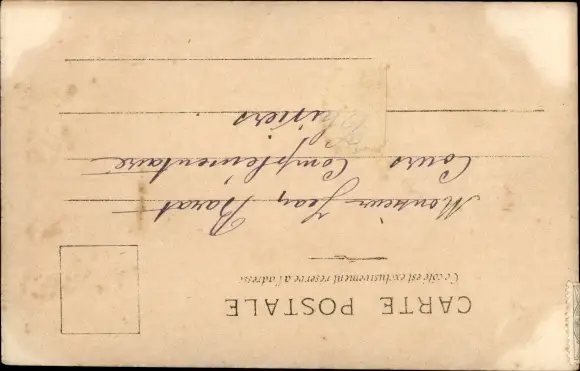 CARTE POSTALE
Ce côté est exclusivement réservé à l'adresse
Monsieur Jean Barat
Cours Complémentaire